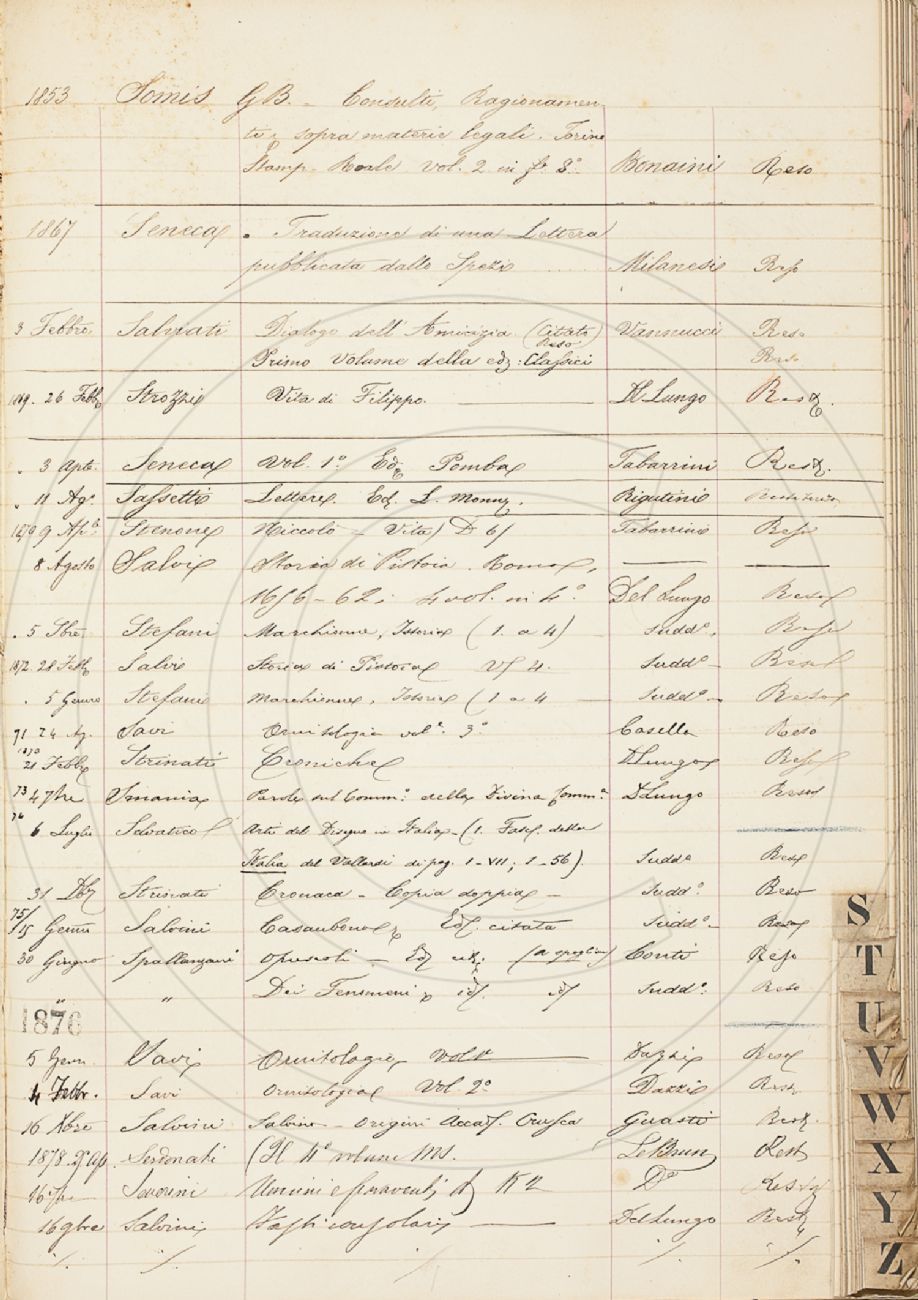 1853 Somis G B. - Consulti, Ragionamen
ti, sopra materie legali. Torino
Stamp. Reale vol. 2 in fo 8.o Bonaini Reso
1867 Seneca . Traduzione di una Lettera
pubblicata dallo Spezi Milanesi Reso
3 Febbro Salviati Dialogo dell'Amicizia (Citato Vannucci Reso
Reso
Primo Volume della edz: Classici Reso
1869. 26 Febbo Strozzi Vita di Filippo. — D Lungo Resto.
. 3 Aple. Seneca Vol. 1o. Edz Pomba Tabarrini Resto.
. 11 Ago Sassetti Lettere. Ed. L. Monnr. Rigutini Restituito
1870 9 Aple. Stenone Niccolò - Vita) D 6/ Tabarrini Reso
8 Agosto Salvi Storia di Pistoia. Roma, — —
1656-62; 4 vol. in 4o. Del Lungo Reso
. 5 Sbre Stefani Marchionne, Istoria (1. a 4) — Suddo. Reso
1872 28 Febbo Salvi Storia di Pistoia V/ 4. Suddo - Reso
. 5 Genno Stefani Marchionne, Istoria (1 a 4 — Suddo - Reso
71 24 Ag. Savi Ornitologia vole. 3o Casella Reso
1873
21 Febbo Strinati Croniche D Lungo Reso
73 4 7bre Smania Parole sul Comm.o della Divina Comma. D Lungo Reso
74
6 Luglio Selvatico Arti del Disegno in Italia - (1. Fasc. della
Italia del Vallardi di pag. 1-VII; 1-56). Suddo Reso
31 Xbre Strinati Cronaca - Copia doppia - Suddo. Reso
75/
15 Genno Salvini Casaubono, Edz. citata Suddo. - Reso
30 Giugno Spallanzani Opuscoli — Edz cit. Conti Reso
" " Dei Fenomeni, id. id Suddo. Reso
1876
5 Genn Savi Ornitologia, vol. — Dazzi Reso
4 Febbr. Savi Ornitologia Vol. 2o Dazzi Resto
16 Xbre Salvini Salvino - Origini Accad. Crusca Guasti Resto.
1878. Ap. Serdonati (Il 4o volume MS. Le Brun Rest
16 Saverini K 2 Do Resto
16 9bre Salvini Fasti consolari — Del Lungo Resto
./. ./. ./. ./.
S
T
U
V
W
X
Y
Z